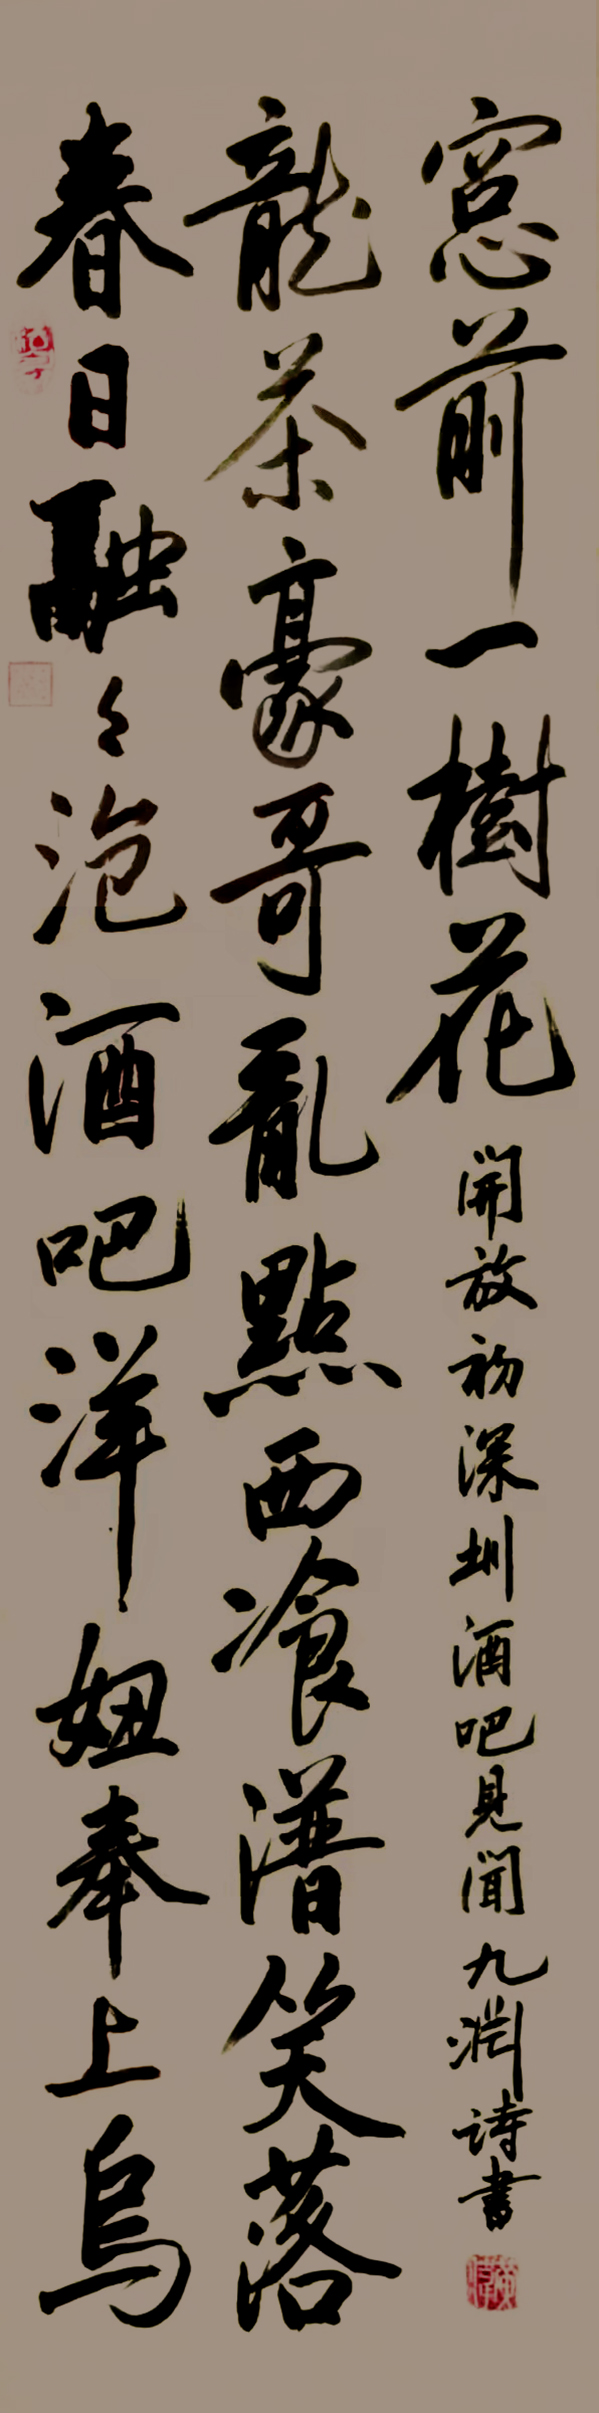 春日融々泡酒吧洋妞奉上烏
龍茶豪哥亂點西飡譜笑落
窓前一樹花
開放初深圳酒吧見聞九淵詩書